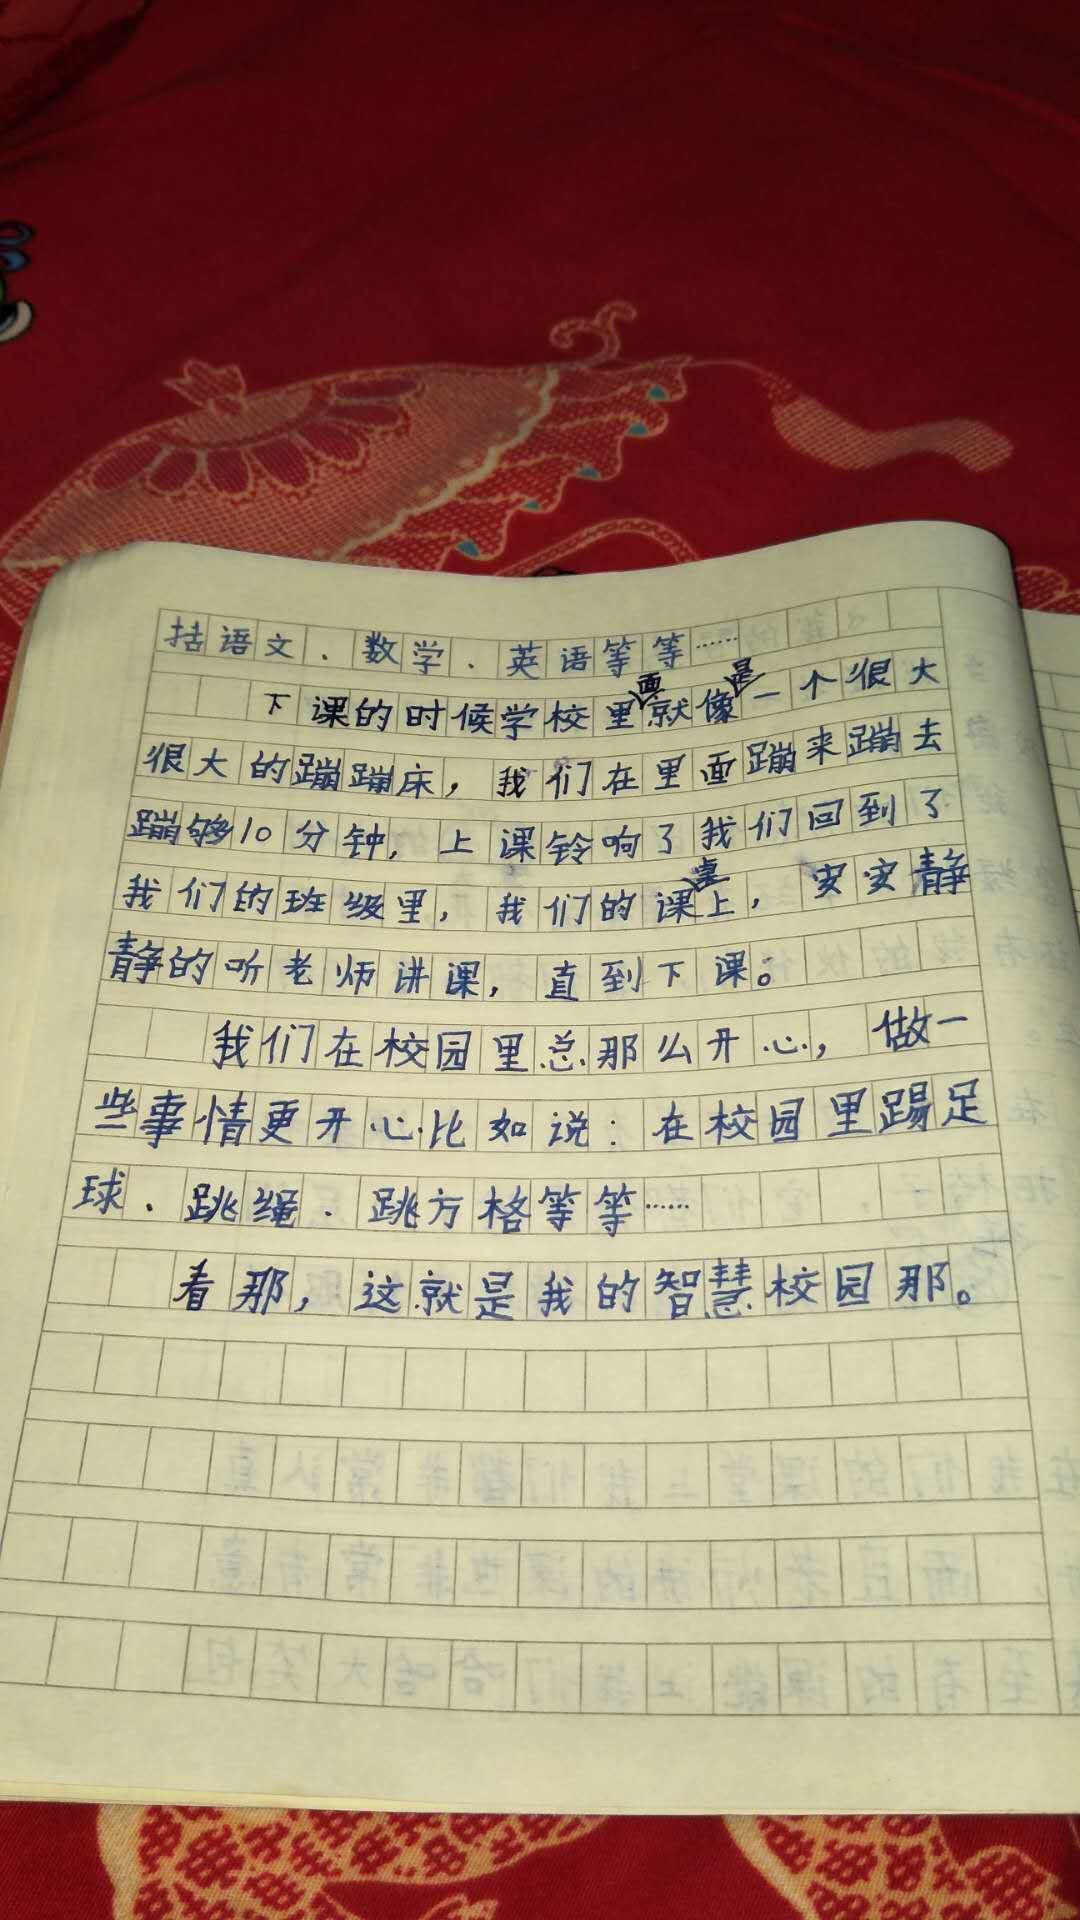 括语文、数学、英语等等……
下课的时候学校里面就像是一个很大
很大的蹦蹦床，我们在里面蹦来蹦去
蹦够10分钟，上课铃响了我们回到了
我们的班级里，我们的课桌上，安安静
静的听老师讲课，直到下课。
我们在校园里总那么开心，做一
些事情更开心比如说：在校园里踢足
球、跳绳、跳方格等等……
看那，这就是我的智慧校园那。